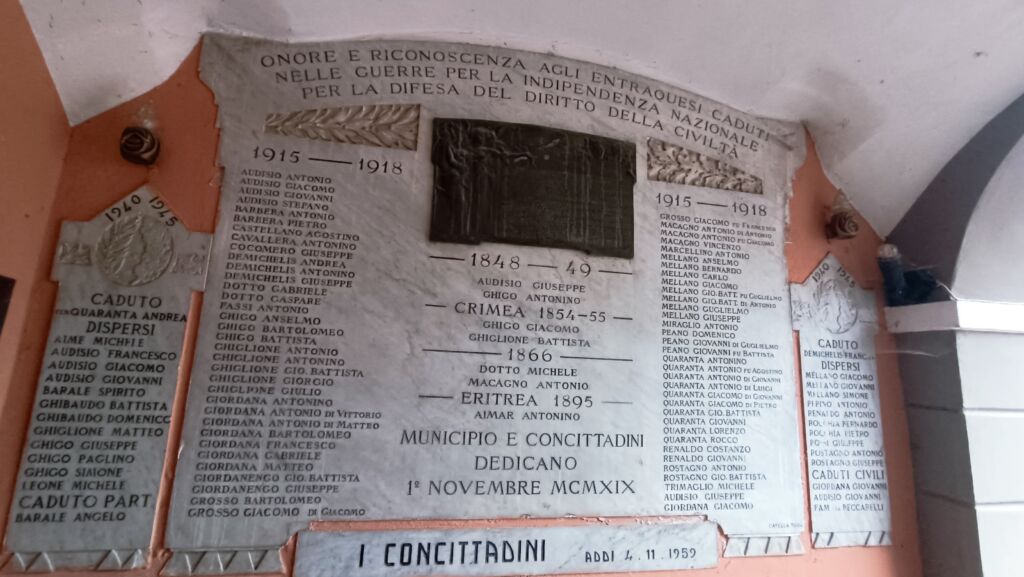 ONORE E RICONOSCENZA AGLI ENTRAQUESI CADUTI
NELLE GUERRE PER LA INDIPENDENZA NAZIONALE
PER LA DIFESA DEL DIRITTO DELLA CIVILTÀ
1915 — 1918
AUDISIO ANTONIO
AUDISIO GIACOMO
AUDISIO GIOVANNI
AUDISIO STEFANO
BARBERA ANTONIO
BARBERA PIETRO
CASTELLANO AGOSTINO
CAVALLERA ANTONINO
COCOMERO GIUSEPPE
DEMICHELIS ANDREA
DEMICHELIS ANTONINO
DEMICHELIS GIUSEPPE
DOTTO GABRIELE
DOTTO GASPARE
FASSI ANTONIO
GHIGO ANSELMO
GHIGO BARTOLOMEO
GHIGO BATTISTA
GHIGLIONE ANTONIO
GHIGLIONE ANTONINO
GHIGLIONE GIO. BATTISTA
GHIGLIONE GIORGIO
GHIGLIONE GIULIO
GIORDANA ANTONINO
GIORDANA ANTONIO DI VITTORIO
GIORDANA ANTONIO DI MATTEO
GIORDANA BARTOLOMEO
GIORDANA FRANCESCO
GIORDANA GABRIELE
GIORDANA MATTEO
GIORDANENGO GIO. BATTISTA
GIORDANENGO GIUSEPPE
GROSSO BARTOLOMEO
GROSSO GIACOMO DI GIACOMO
1848 — 49
AUDISIO GIUSEPPE
GHIGO ANTONINO
CRIMEA 1854-55
GHIGO GIACOMO
GHIGLIONE BATTISTA
1866
DOTTO MICHELE
MACAGNO ANTONIO
ERITREA 1895
AIMAR ANTONINO
MUNICIPIO E CONCITTADINI
DEDICANO
1º NOVEMBRE MCMXIX
1915 — 1918
GROSSO GIACOMO FU FRANCESCO
MACAGNO ANTONIO DI ANTONIO
MACAGNO ANTONIO FU GIACOMO
MACAGNO VINCENZO
MARCELLINO ANTONIO
MELLANO ANSELMO
MELLANO BERNARDO
MELLANO CARLO
MELLANO GIACOMO
MELLANO GIO.BATT. FU GUGLIELMO
MELLANO GIO.BATT. DI ANTONIO
MELLANO GUGLIELMO
MELLANO GIUSEPPE
MIRAGLIO ANTONIO
PEANO DOMENICO
PEANO GIOVANNI DI GUGLIELMO
PEANO GIOVANNI FU BATTISTA
QUARANTA ANTONINO
QUARANTA ANTONIO FU AGOSTINO
QUARANTA ANTONIO DI GIOVANNI
QUARANTA ANTONIO DI LUIGI
QUARANTA GIACOMO DI GIOVANNI
QUARANTA GIACOMO DI PIETRO
QUARANTA GIO. BATTISTA
QUARANTA GIOVANNI
QUARANTA LORENZO
QUARANTA ROCCO
RENALDO COSTANZO
RENALDO GIOVANNI
ROSTAGNO ANTONIO
ROSTAGNO GIO. BATTISTA
TRIMAGLIO MICHELE
AUDISIO GIUSEPPE
GIORDANA GIOVANNI
1940 1945
CADUTO
QUARANTA ANDREA
DISPERSI
AIME MICHELE
AUDISIO FRANCESCO
AUDISIO GIACOMO
AUDISIO GIOVANNI
BARALE SPIRITO
GHIBAUDO BATTISTA
GHIBAUDO DOMENICO
GHIGLIONE MATTEO
GHIGO GIUSEPPE
GHIGO PAOLINO
GHIGO SIMONE
LEONE MICHELE
CADUTO PART.
BARALE ANGELO
1940 1945
CADUTO
DEMICHELIS
DISPERSI
MELLANO GIACOMO
MELLANO GIOVANNI
MELLANO SIMONE
PEPINO ANTONIO
RENALDO ANTONIO
ROCCHIA BERNARDO
ROCCHIA PIETRO
GIUSEPPE
ROSTAGNO ANTONIO
ROSTAGNO GIUSEPPE
CADUTI CIVILI
GIORDANA GIOVANNI
AUDISIO GIOVANNI
BECCARELLI
I CONCITTADINI ADDI 4.11.1959